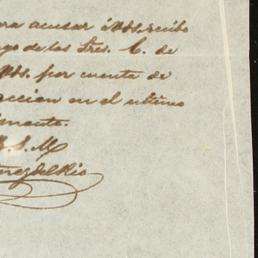 ra acusar á Vds. recibo
go de los Sres. C. de
Vds. por cuenta de
accion en el ultimo
mente.
B. S. M.
nez del Rio